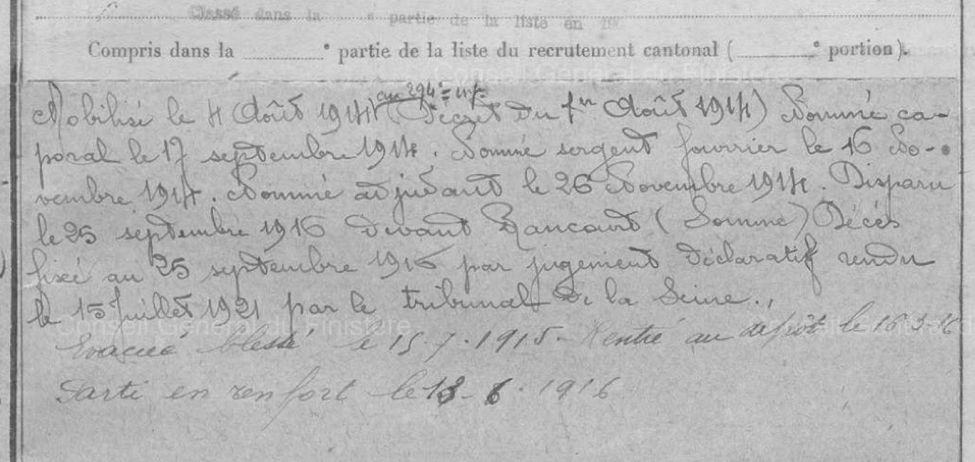 Classé dans la e partie de la liste en 19
Compris dans la ............e partie de la liste du recrutement cantonal (............e portion).
au 294e inf.
Mobilisé le 4 Août 1914 (Décret du 1er Août 1914) Nommé ca-
poral le 17 septembre 1914. Nommé sergent fourrier le 16 No-
vembre 1914. Nommé adjudant le 26 Novembre 1914. Disparu
le 25 septembre 1916 devant Rancourt (Somme) Décès
fixé au 25 septembre 1916 par jugement déclaratif rendu
le 15 Juillet 1921 par le tribunal de la Seine.
Conseil Général du Finistère
Evacué blessé le 15.7.1915. Rentré au dépôt le 16-3-16
Parti en renfort le 13-6-1916